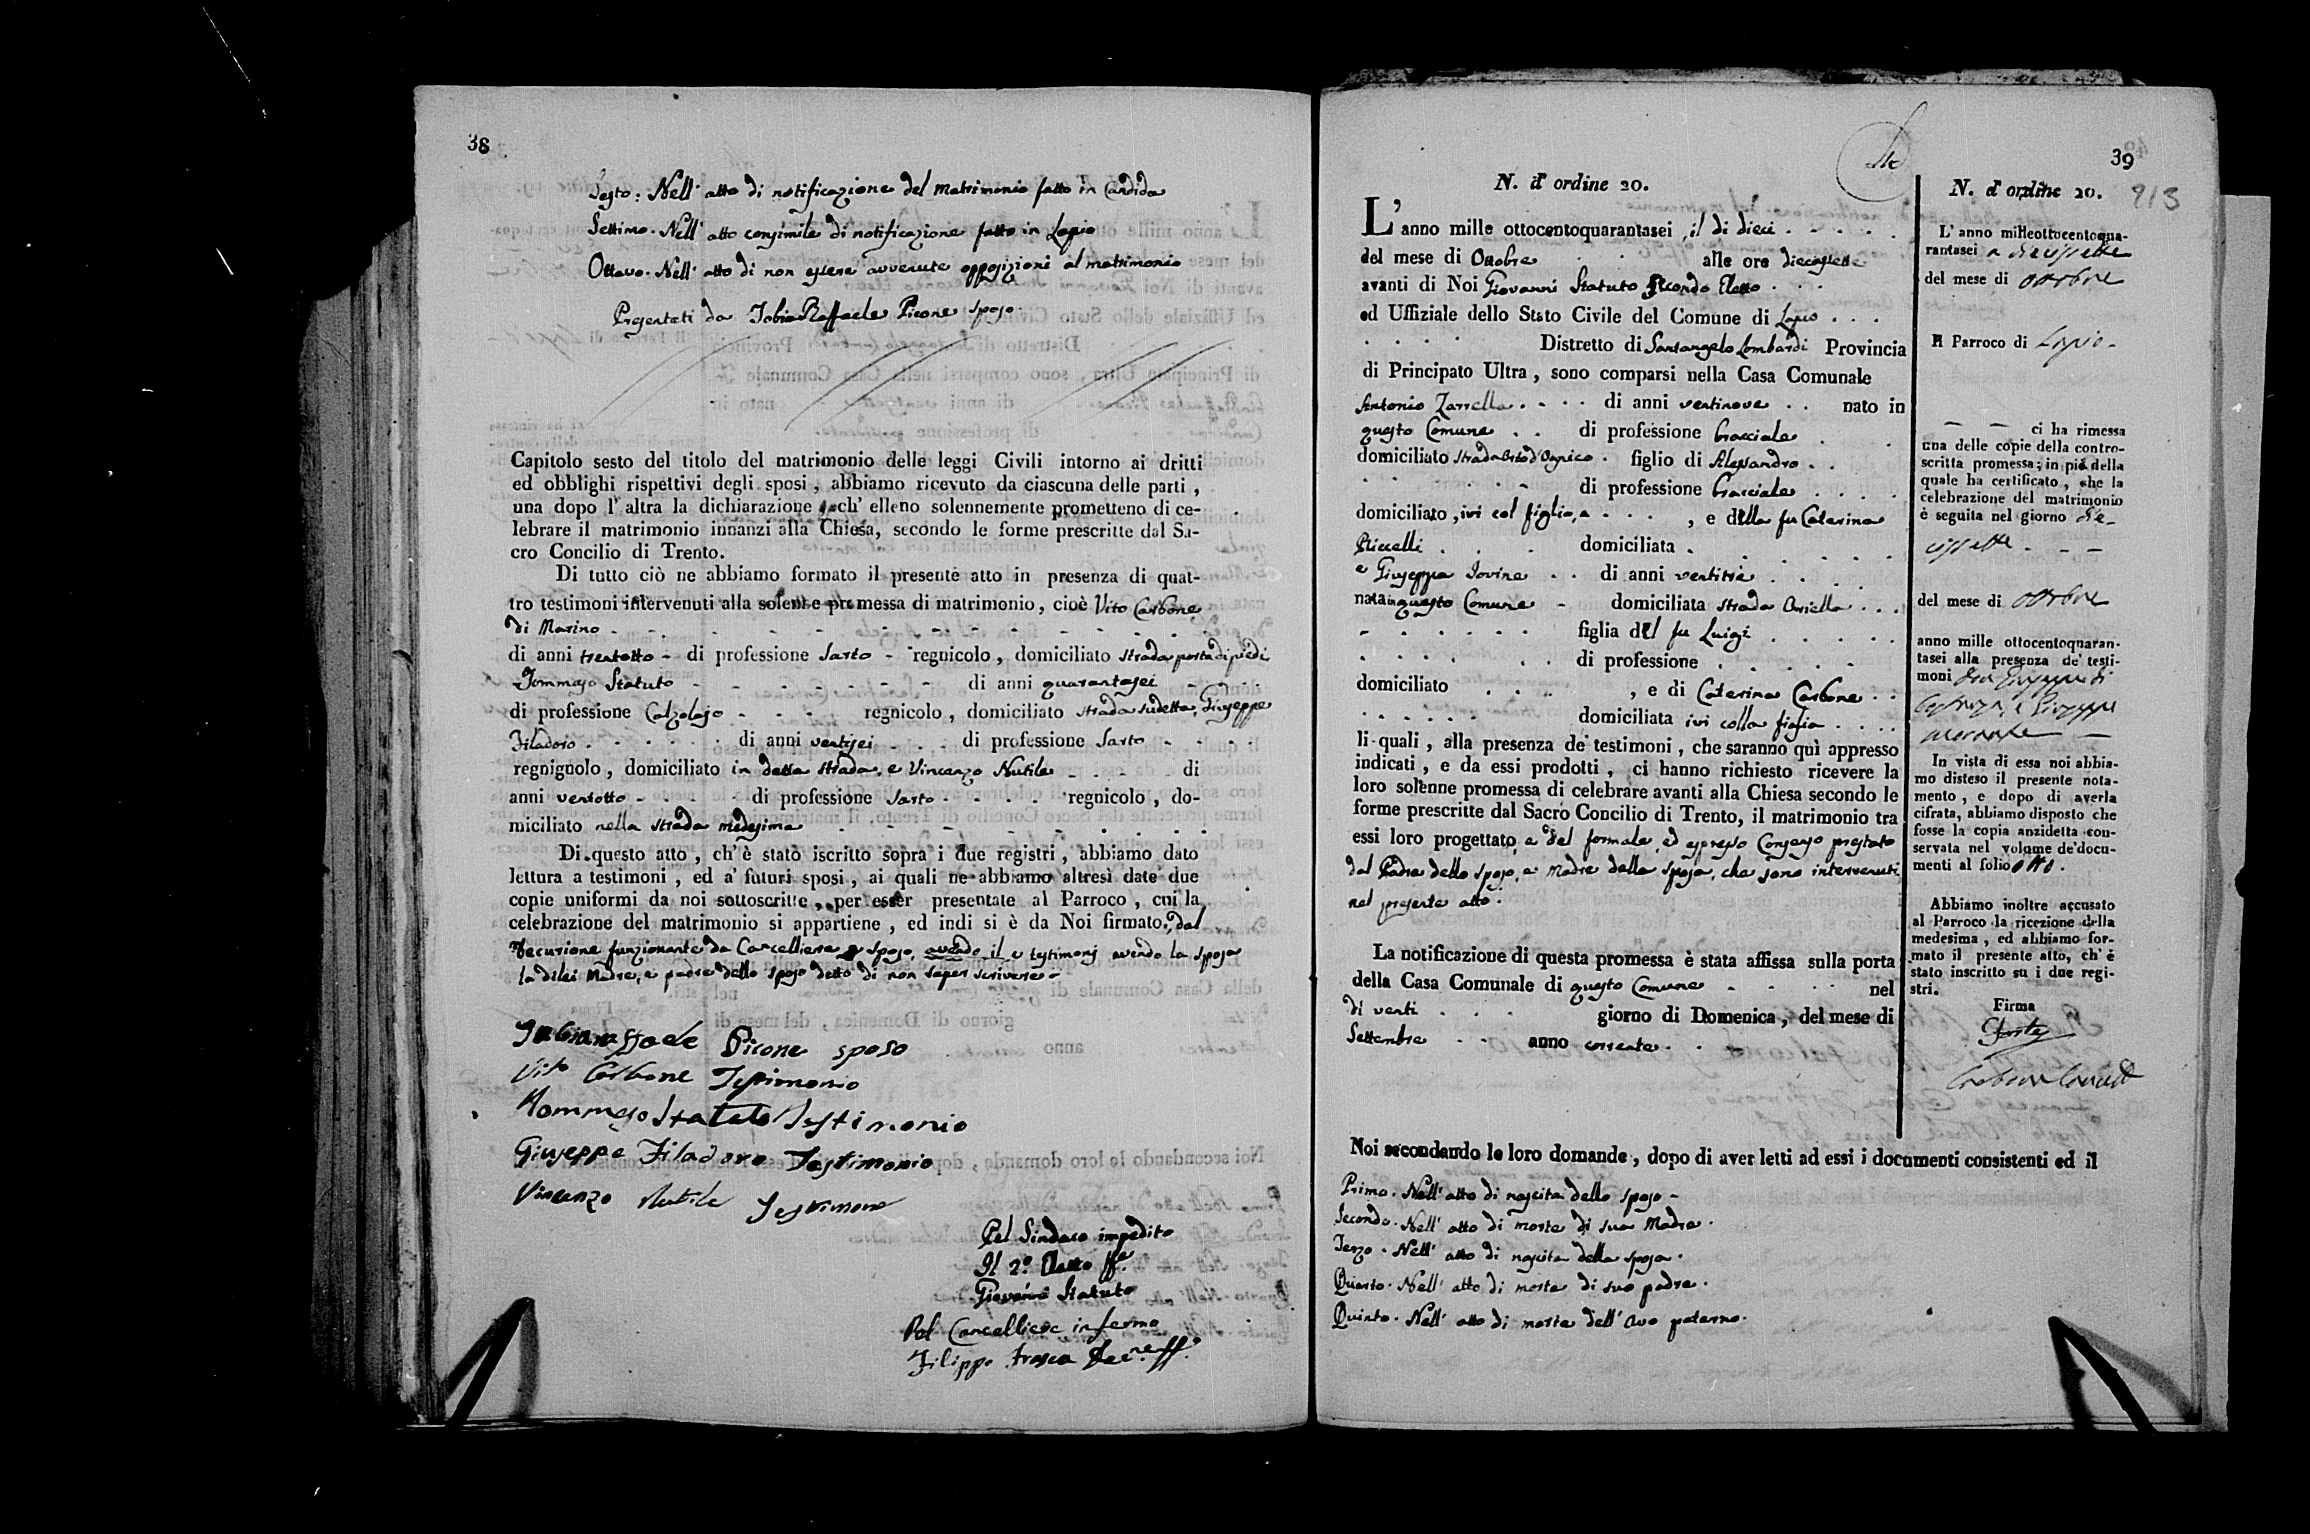 38
Sesto: Nell' atto di notificazione del matrimonio fatto in Candida
Settimo. Nell' atto consimile di notificazione fatto in Lapio
Ottavo. Nell' atto di non essere avvenute opposizioni al matrimonio
Presentati da Tobia Raffaele Picone sposo.
Capitolo sesto del titolo del matrimonio delle leggi Civili intorno ai dritti
ed obblighi rispettivi degli sposi, abbiamo ricevuto da ciascuna delle parti,
una dopo l' altra la dichiarazione, ch' elleno solennemente promettono di ce-
lebrare il matrimonio innanzi alla Chiesa, secondo le forme prescritte dal Sa-
cro Concilio di Trento.
Di tutto ciò ne abbiamo formato il presente atto in presenza di quat-
tro testimoni intervenuti alla solenne promessa di matrimonio, cioè Vito Carbone
di Marino
di anni trentotto di professione Sarto regnicolo, domiciliato strada porta di piedi
Tommaso Statuto di anni quarantasei
di professione Calzolajo regnicolo, domiciliato strada sudetta, Giuseppe
Filadoro di anni ventisei di professione Sarto
regnignolo, domiciliato in detta strada, e Vincenzo Nutile di
anni ventotto di professione Sarto regnicolo, do-
miciliato nella strada medesima
Di questo atto, ch' è stato iscritto sopra i due registri, abbiamo dato
lettura a testimoni, ed a' futuri sposi, ai quali ne abbiamo altresì date due
copie uniformi da noi sottoscritte, per esser presentate al Parroco, cui la
celebrazione del matrimonio si appartiene, ed indi si è da Noi firmato, dal
Decurione funzionante da Cancelliere sposo, avendo il e testimonj avendo la sposa
la dilei Madre, e padre dello sposo detto di non saper scrivere -
Tobia raffaele Picone sposo
Vito Carbone Testimonio
Tommaso Statuto Testimonio
Giuseppe Filadoro Testimonio
Vincenzo Nutile Testimone
Pel Sindaco impedito
Il 2º. Eletto ff.
Giovanni Statuto
Pel Cancelliere infermo
Filippo Frasca Dec.ne ff.
39
N. d' ordine 20.
L' anno mille ottocentoquarantasei, il di dieci
del mese di Ottobre alle ore diecasette
avanti di Noi Giovanni Statuto Secondo Eletto
ed Uffiziale dello Stato Civile del Comune di Lapio
Distretto di Santangelo Lombardi Provincia
di Principato Ultra, sono comparsi nella Casa Comunale
Antonio Zarrella di anni ventinove nato in
questo Comune di professione bracciale
domiciliato Strada figlio di Alessandro
di professione bracciale
domiciliato, ivi col figlio, e della fu Caterina
domiciliata
e Giuseppa Iovine di anni ventitre
nata in questo Comune domiciliata strada
figlia del fu Luigi
di professione
domiciliato, e di Caterina Carbone
domiciliata ivi colla figlia
li quali, alla presenza de' testimoni, che saranno quì appresso
indicati, e da essi prodotti, ci hanno richiesto ricevere la
loro solenne promessa di celebrare avanti alla Chiesa secondo le
forme prescritte dal Sacro Concilio di Trento, il matrimonio tra
essi loro progettato, e del formale, ed espresso Consenso prestato
dal Padre dello sposo, e Madre della sposa, che sono intervenuti
nel presente atto.
La notificazione di questa promessa è stata affissa sulla porta
della Casa Comunale di questo Comune nel
di venti giorno di Domenica, del mese di
Settembre anno corrente.
Noi secondando le loro domande, dopo di aver letti ad essi i documenti consistenti ed il
Primo. Nell' atto di nascita dello sposo -
Secondo. Nell' atto di morte di sua Madre.
Terzo. Nell' atto di nascita della sposa.
Quarto. Nell' atto di morte di suo padre.
Quinto. Nell' atto di morte dell' Avo paterno.
N. d' ordine 20.
913
L' anno milleottocentoqua-
rantasei a diecissette
del mese di ottobre
Il Parroco di Lapio
ci ha rimessa
una delle copie della contro-
scritta promessa; in piè della
quale ha certificato, che la
celebrazione del matrimonio
è seguita nel giorno die-
cissette
del mese di ottobre
anno mille ottocentoquaran-
tasei alla presenza de' testi-
moni Don Giuseppe di
e Giuseppe
In vista di essa noi abbia-
mo disteso il presente nota-
mento, e dopo di averla
cifrata, abbiamo disposto che
fosse la copia anzidetta con-
servata nel volume de' docu-
menti al folio otto.
Abbiamo inoltre accusato
al Parroco la ricezione della
medesima, ed abbiamo for-
mato il presente atto, ch' è
stato inscritto su i due regi-
stri.
Firma